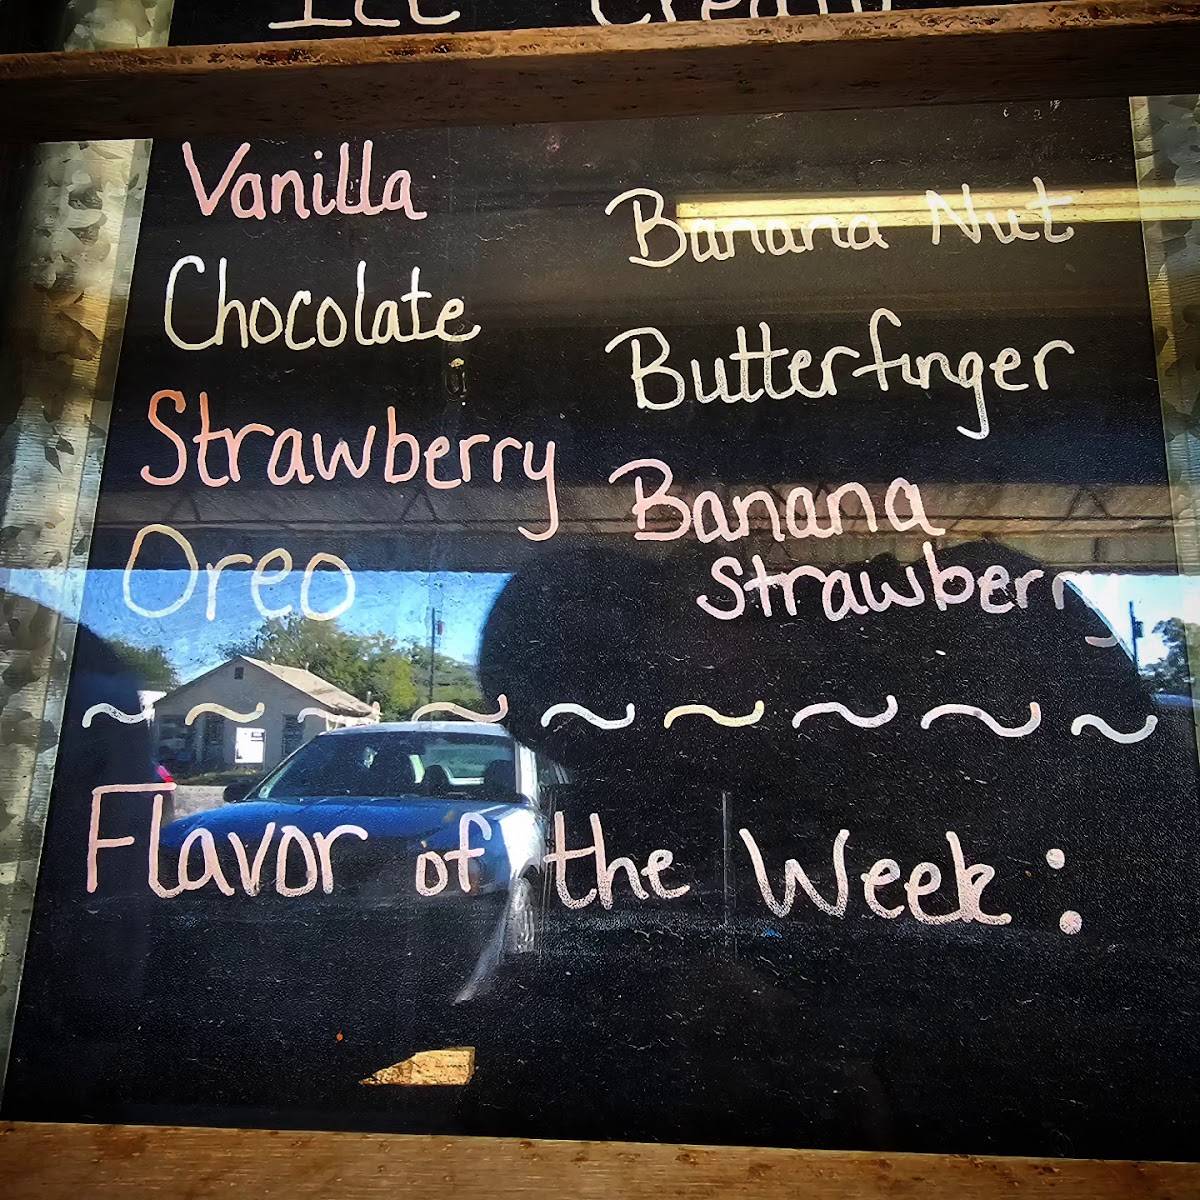 Ice Cream
Vanilla
Chocolate
Strawberry
Oreo
Banana Nut
Butterfinger
Banana
Strawberry
~ ~ ~ ~ ~ ~ ~ ~ ~
Flavor of the Week: